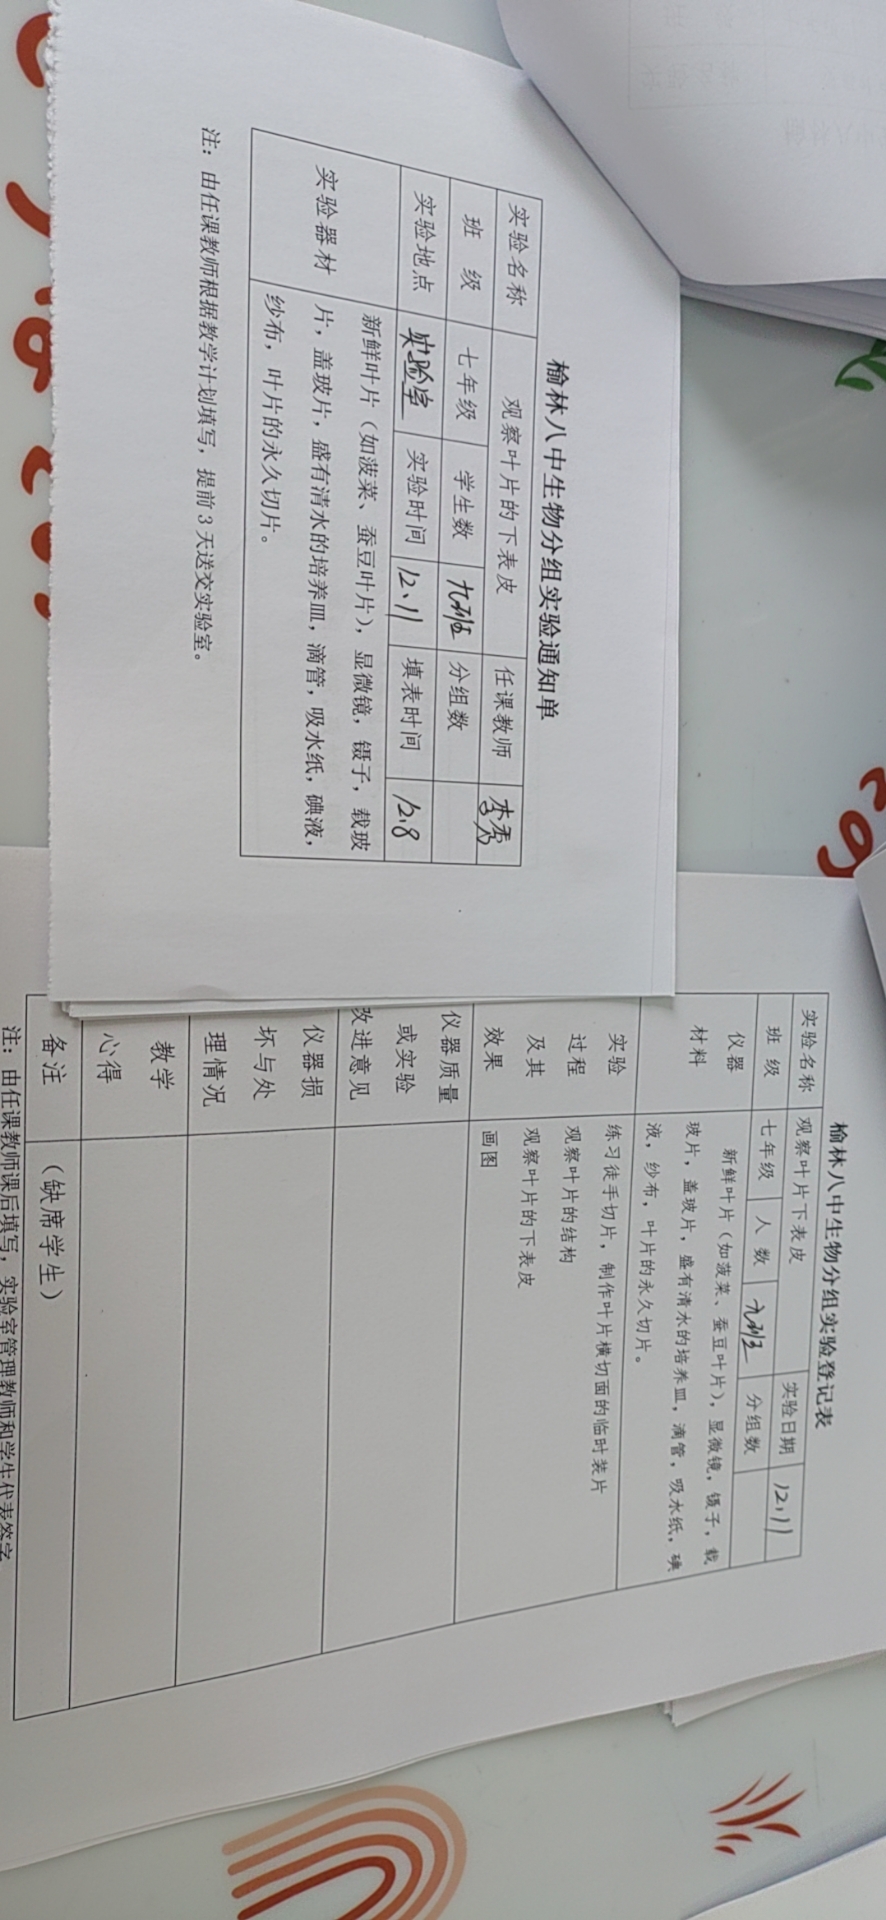 榆林八中生物分组实验通知单
实验名称 观察叶片的下表皮 任课教师 李秀
班 级 七年级 学生数 九班 分组数
实验地点 实验室 实验时间 12.11 填表时间 12.8
实验器材
新鲜叶片（如菠菜、蚕豆叶片），显微镜，镊子，载玻
片，盖玻片，盛有清水的培养皿，滴管，吸水纸，碘液，
纱布，叶片的永久切片。
注：由任课教师根据教学计划填写，提前3天送交实验室。
榆林八中生物分组实验登记表
实验名称 观察叶片下表皮 实验日期 12.11
班 级 七年级 人 数 九班 分组数
仪器
材料
新鲜叶片（如菠菜、蚕豆叶片），显微镜，镊子，载
玻片，盖玻片，盛有清水的培养皿，滴管，吸水纸，碘
液，纱布，叶片的永久切片。
实验
过程
及其
效果
练习徒手切片，制作叶片横切面的临时装片
观察叶片的结构
观察叶片的下表皮
画图
仪器质量
或实验
改进意见
仪器损
坏与处
理情况
教学
心得
备注 （缺席学生）
注：由任课教师课后填写，实验室管理教师和学生代表签字